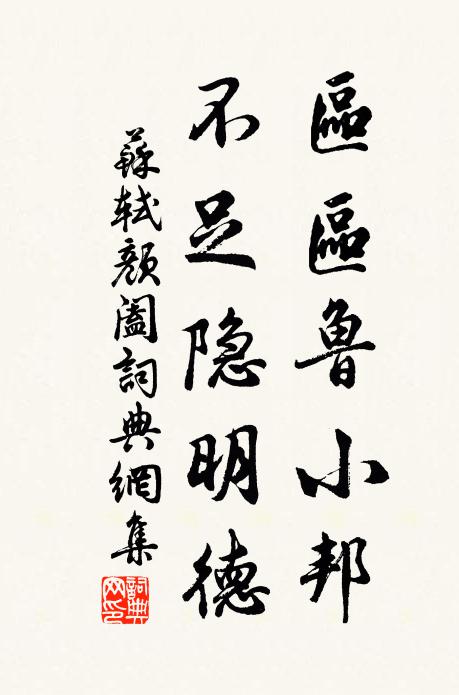 區區魯小邦
不足隐明德
蘇軾顏闔詞典網集
詞典網印